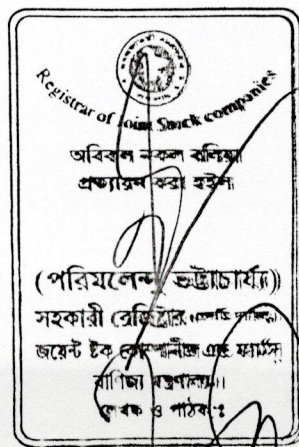 Registrar of Joint Stock companies
অবিকল নকল বলিয়া
প্রত্যায়ন করা হইল
(পরিমলেন্দু ভট্টাচার্য্য)
সহকারী রেজিষ্ট্রার
জয়েন্ট ষ্টক কোম্পানীজ এন্ড ফার্মস
বাণিজ্য মন্ত্রণালয়।
লেখক ও পাঠক ঃ